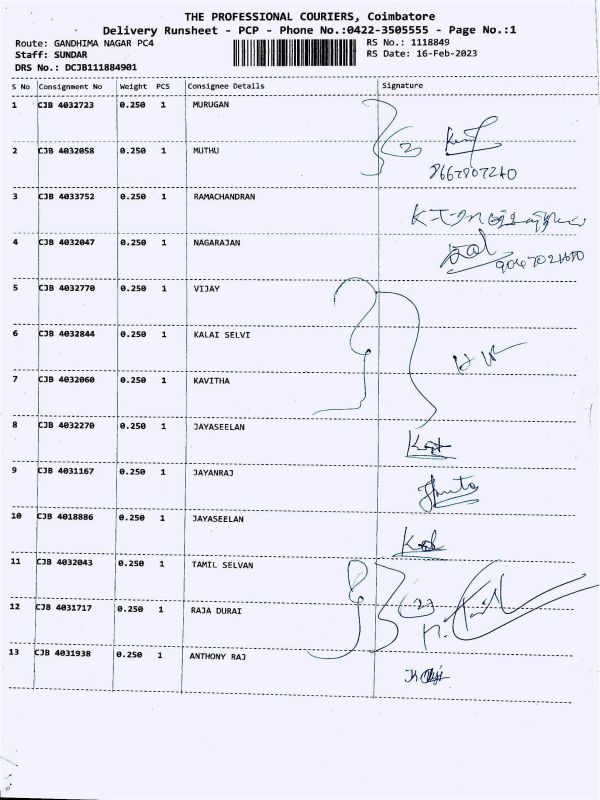 THE PROFESSIONAL COURIERS, Coimbatore
Delivery Runsheet - PCP - Phone No.:0422-3505555 - Page No.:1
Route: GANDHIMA NAGAR PC4
RS No.: 1118849
Staff: SUNDAR
RS Date: 16-Feb-2023
DRS No.: DCJB111884901
S No Consignment No Weight PCS Consignee Details Signature
1 CJB 4032723 0.250 1 MURUGAN
2 CJB 4032058 0.250 1 MUTHU
(2)
8667807240
3 CJB 4033752 0.250 1 RAMACHANDRAN
4 CJB 4032047 0.250 1 NAGARAJAN
5 CJB 4032770 0.250 1 VIJAY
6 CJB 4032844 0.250 1 KALAI SELVI
7 CJB 4032060 0.250 1 KAVITHA
8 CJB 4032270 0.250 1 JAYASEELAN
9 CJB 4031167 0.250 1 JAYANRAJ
10 CJB 4018886 0.250 1 JAYASEELAN
11 CJB 4032043 0.250 1 TAMIL SELVAN
12 CJB 4031717 0.250 1 RAJA DURAI
(2)
13 CJB 4031938 0.250 1 ANTHONY RAJ